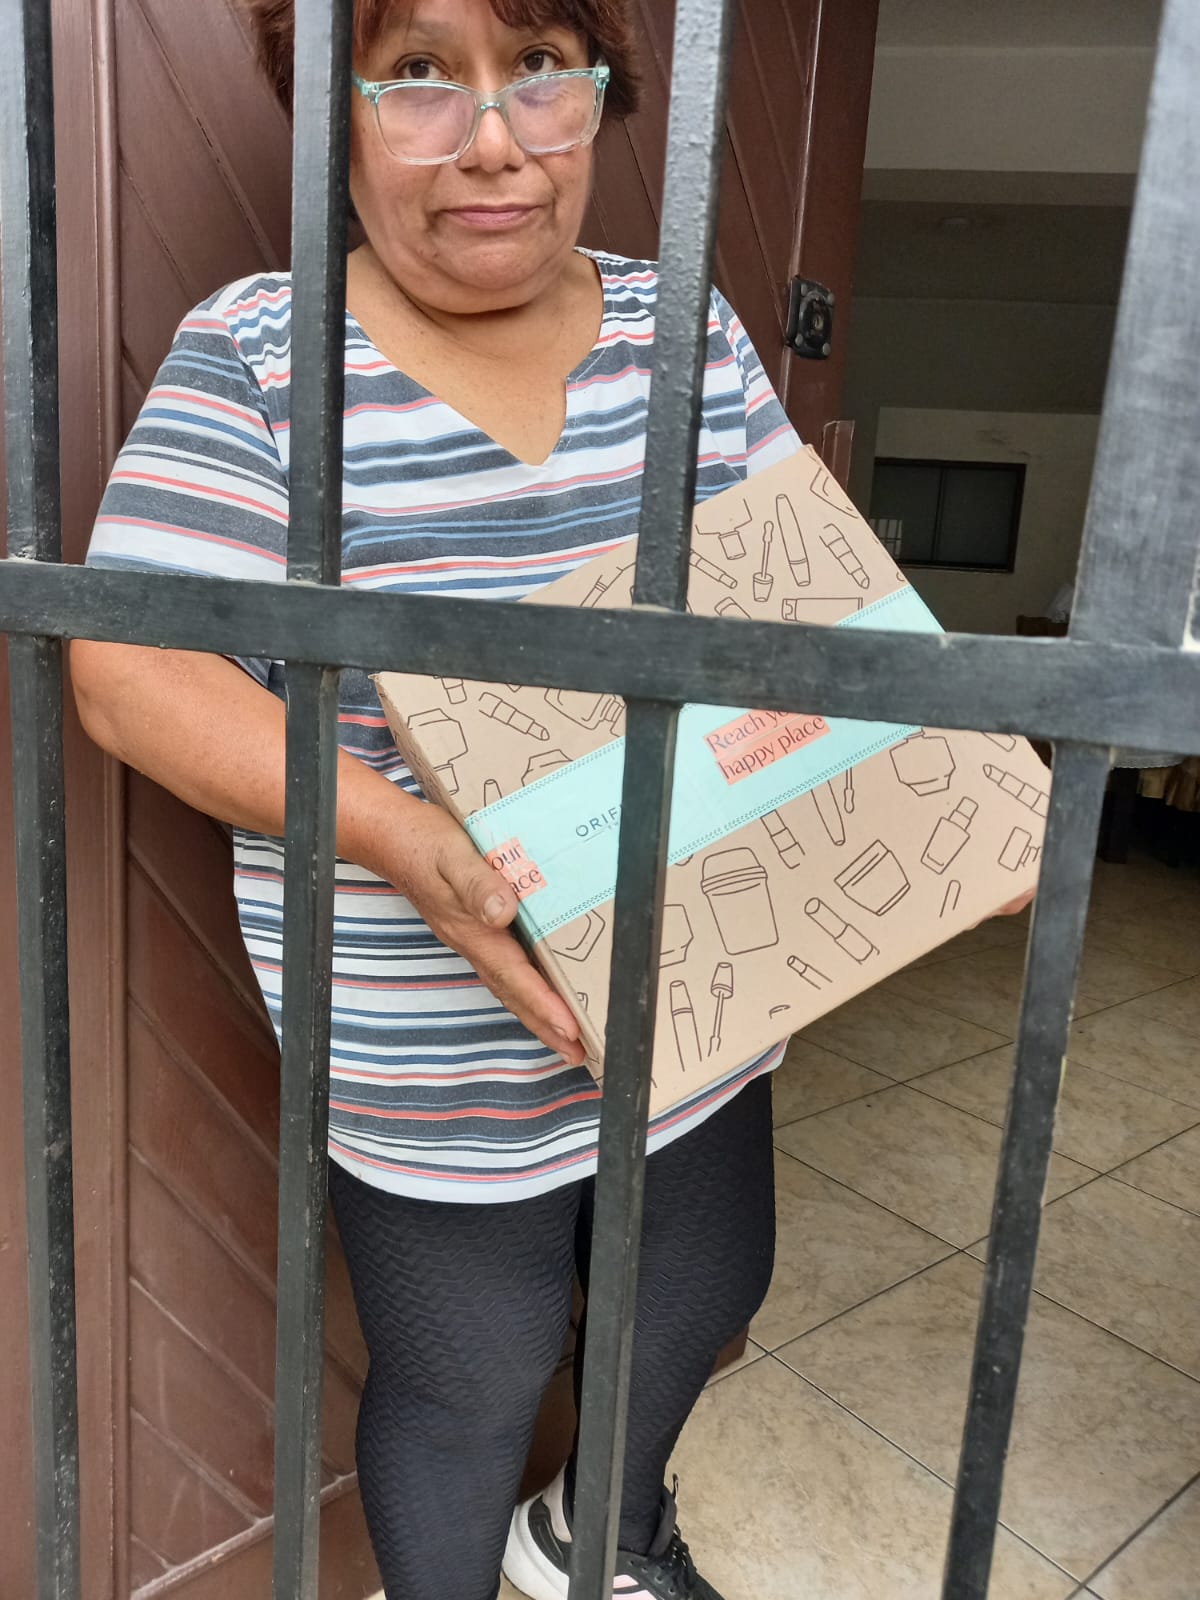 Reach
happy place
ORIF
our
ace